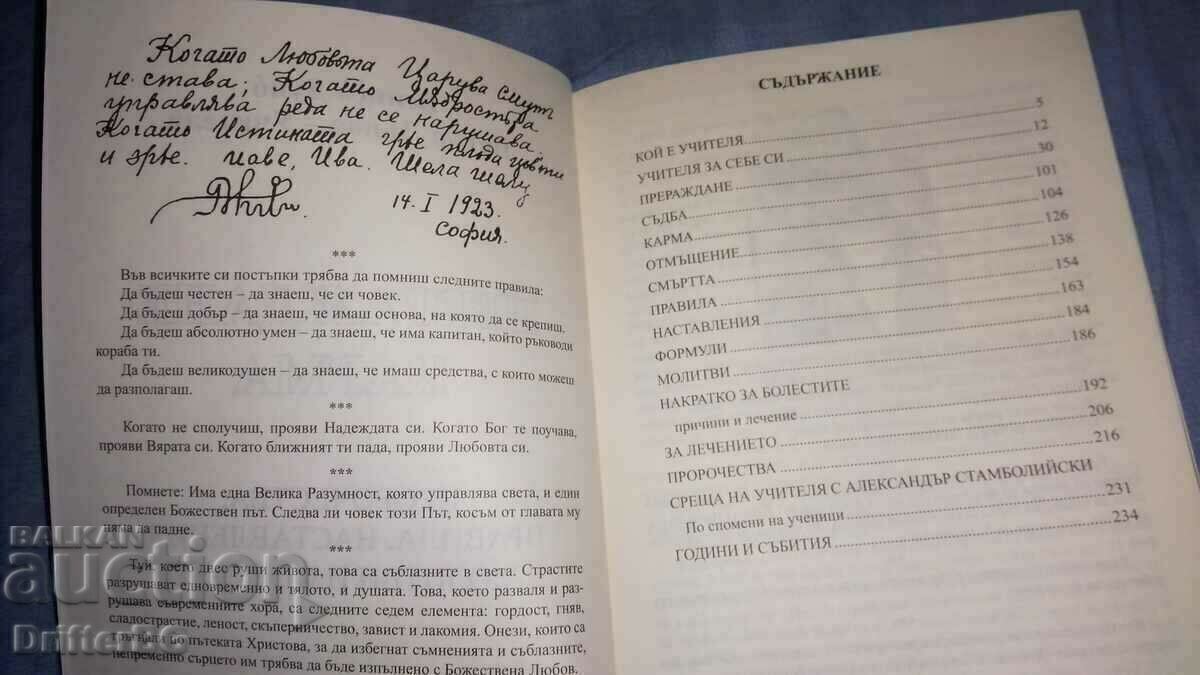 Когато Любовьта Царува смутъ
не става; Когато Мѫдростьта
управлява реда не се нарушава.
Когато Истината грѣе плода цъвти
и зрѣе.
14. I 1923.
София.
***
Във всичките си постъпки трябва да помниш следните правила:
Да бъдеш честен – да знаеш, че си човек.
Да бъдеш добър – да знаеш, че имаш основа, на която да се крепиш.
Да бъдеш абсолютно умен – да знаеш, че има капитан, който ръководи
кораба ти.
Да бъдеш великодушен – да знаеш, че имаш средства, с които можеш
да разполагаш.
***
Когато не сполучиш, прояви Надеждата си. Когато Бог те поучава,
прояви Вярата си. Когато ближният ти пада, прояви Любовта си.
***
Помнете: Има една Велика Разумност, която управлява света, и един
определен Божествен път. Следва ли човек този Път, косъм от главата му
няма да падне.
***
Туй, което днес руши живота, това са съблазните в света. Страстите
разрушават едновременно и тялото, и душата. Това, което разваля и раз-
рушава съвременните хора, са следните седем елемента: гордост, гняв,
сладострастие, леност, скъперничество, завист и лакомия. Онези, които са
тръгнали по пътеката Христова, за да избегнат съмненията и съблазните,
непременно сърцето им трябва да бъде изпълнено с Божествена Любов.
СЪДЪРЖАНИЕ
КОЙ Е УЧИТЕЛЯ 5
УЧИТЕЛЯ ЗА СЕБЕ СИ 12
ПРЕРАЖДАНЕ 30
СЪДБА 101
КАРМА 104
ОТМЪЩЕНИЕ 126
СМЪРТТА 138
ПРАВИЛА 154
НАСТАВЛЕНИЯ 163
ФОРМУЛИ 184
МОЛИТВИ 186
НАКРАТКО ЗА БОЛЕСТИТЕ
причини и лечение 192
ЗА ЛЕЧЕНИЕТО 206
ПРОРОЧЕСТВА 216
СРЕЩА НА УЧИТЕЛЯ С АЛЕКСАНДЪР СТАМБОЛИЙСКИ
По спомени на ученици 231
ГОДИНИ И СЪБИТИЯ 234
BALKAN
auction